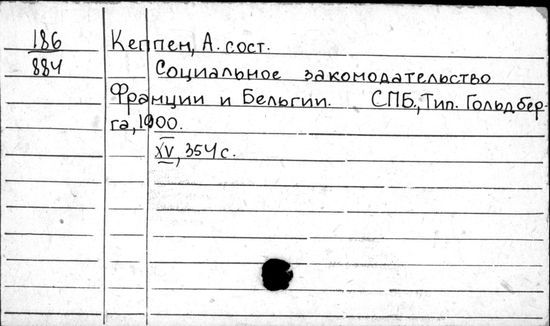 186 Кеппен, А. сост.
884 Социальное закомодательство
Франции и Бельгии. СПБ., Тип. Гольдбер-
га, 1900.
XV, 354 с.